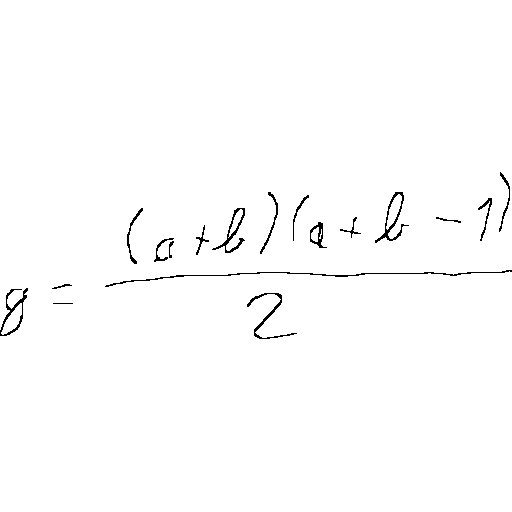 g = \frac{(a+b)(a+b-1)}{2}